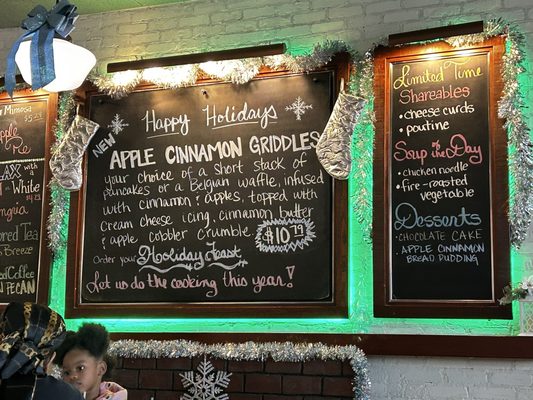 Mimosas
$5.25
Apple
Re
LAX
with a
M
White
ngria
ored Tea
Breeze
Coffee
N PECAN
Happy Holidays
NEW
APPLE CINNAMON GRIDDLES
your choice of a short stack of
pancakes or a Belgian waffle, infused
with cinnamon & apples, topped with
cream cheese icing, cinnamon butter
& apple cobbler crumble.
$10.79
Order your Holiday Feast
Let us do the cooking this year!
Limited Time
Shareables
• cheese curds
• poutine
Soup of the Day
• chicken noodle
• fire-roasted
vegetable
Desserts
• CHOCOLATE CAKE
• APPLE CINNAMON
BREAD PUDDING